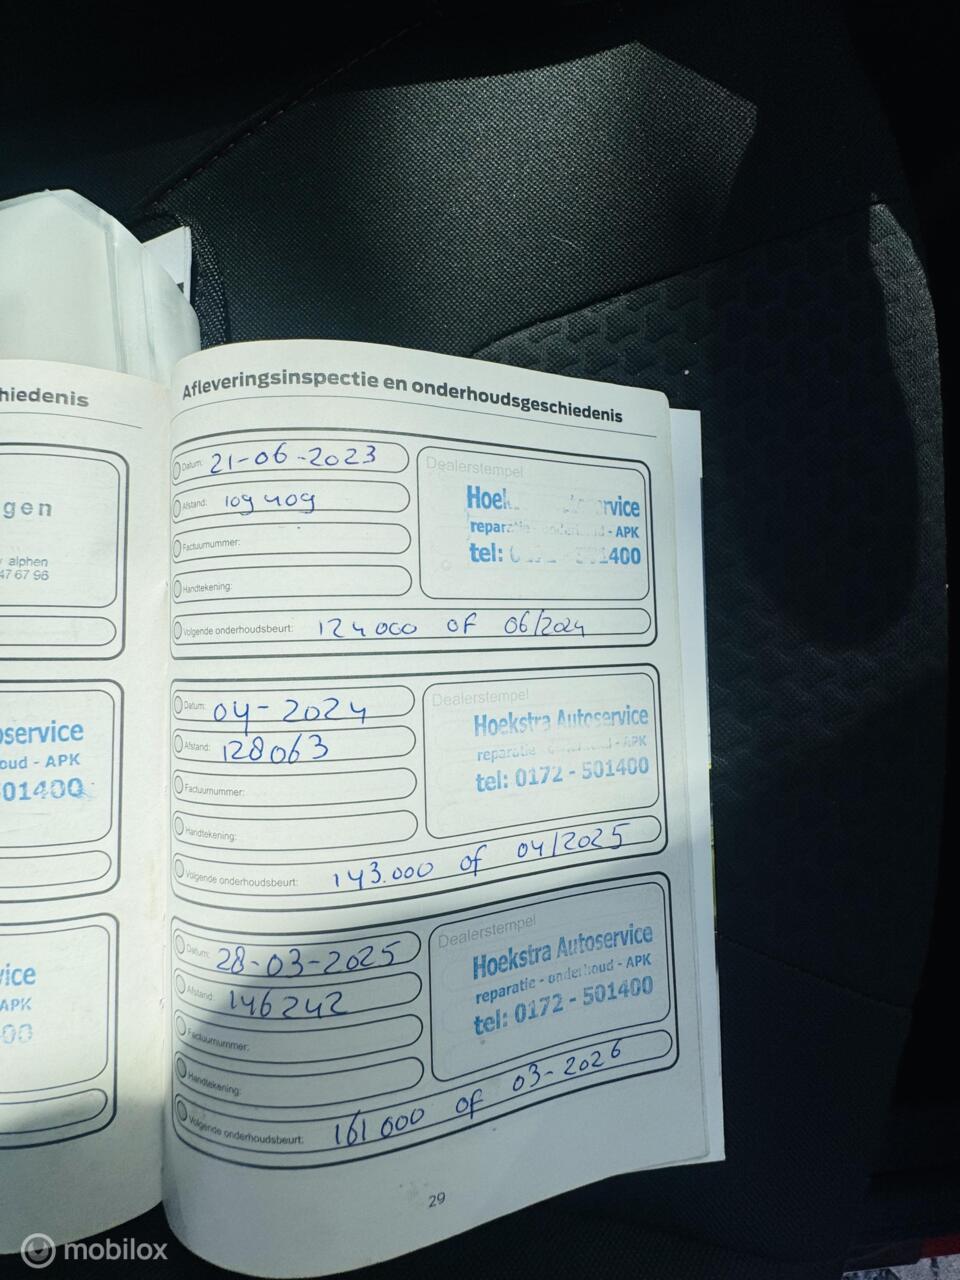 hiedenis
gen
alphen
47 67 96
oservice
oud - APK
501400
vice
APK
00
Afleveringsinspectie en onderhoudsgeschiedenis
Datum: 21-06-2023
Afstand: 109409
Factuurnummer:
Handtekening:
Dealerstempel
Hoek rvice
repar - APK
tel: 0 400
Volgende onderhoudsbeurt: 124000 of 06/2024
Datum: 04-2024
Afstand: 128063
Factuurnummer:
Handtekening:
Dealerstempel
Hoekstra Autoservice
reparatie - onderhoud - APK
tel: 0172 - 501400
Volgende onderhoudsbeurt: 143.000 of 04/2025
Datum: 28-03-2025
Afstand: 146242
Factuurnummer:
Handtekening:
Dealerstempel
Hoekstra Autoservice
reparatie - onderhoud - APK
tel: 0172 - 501400
Volgende onderhoudsbeurt: 161000 of 03-2026
29
mobilox